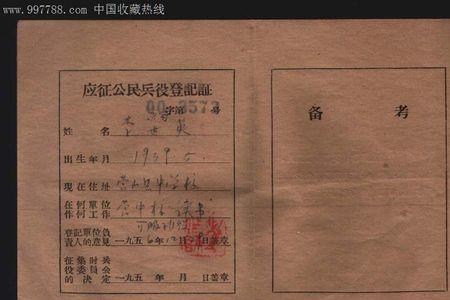 www.997788.com 中国收藏热线
应征公民兵役登記証
字第 00 3573 号
姓名 李世英
出生年月 1939.5.
現在住址 营山县中学校
在何單位作何工作 营中校 读书
登記單位負責人的意見 一九五6年12月 日签章
征集时兵役委員会的决定 一九五 年 月 日签章
备考